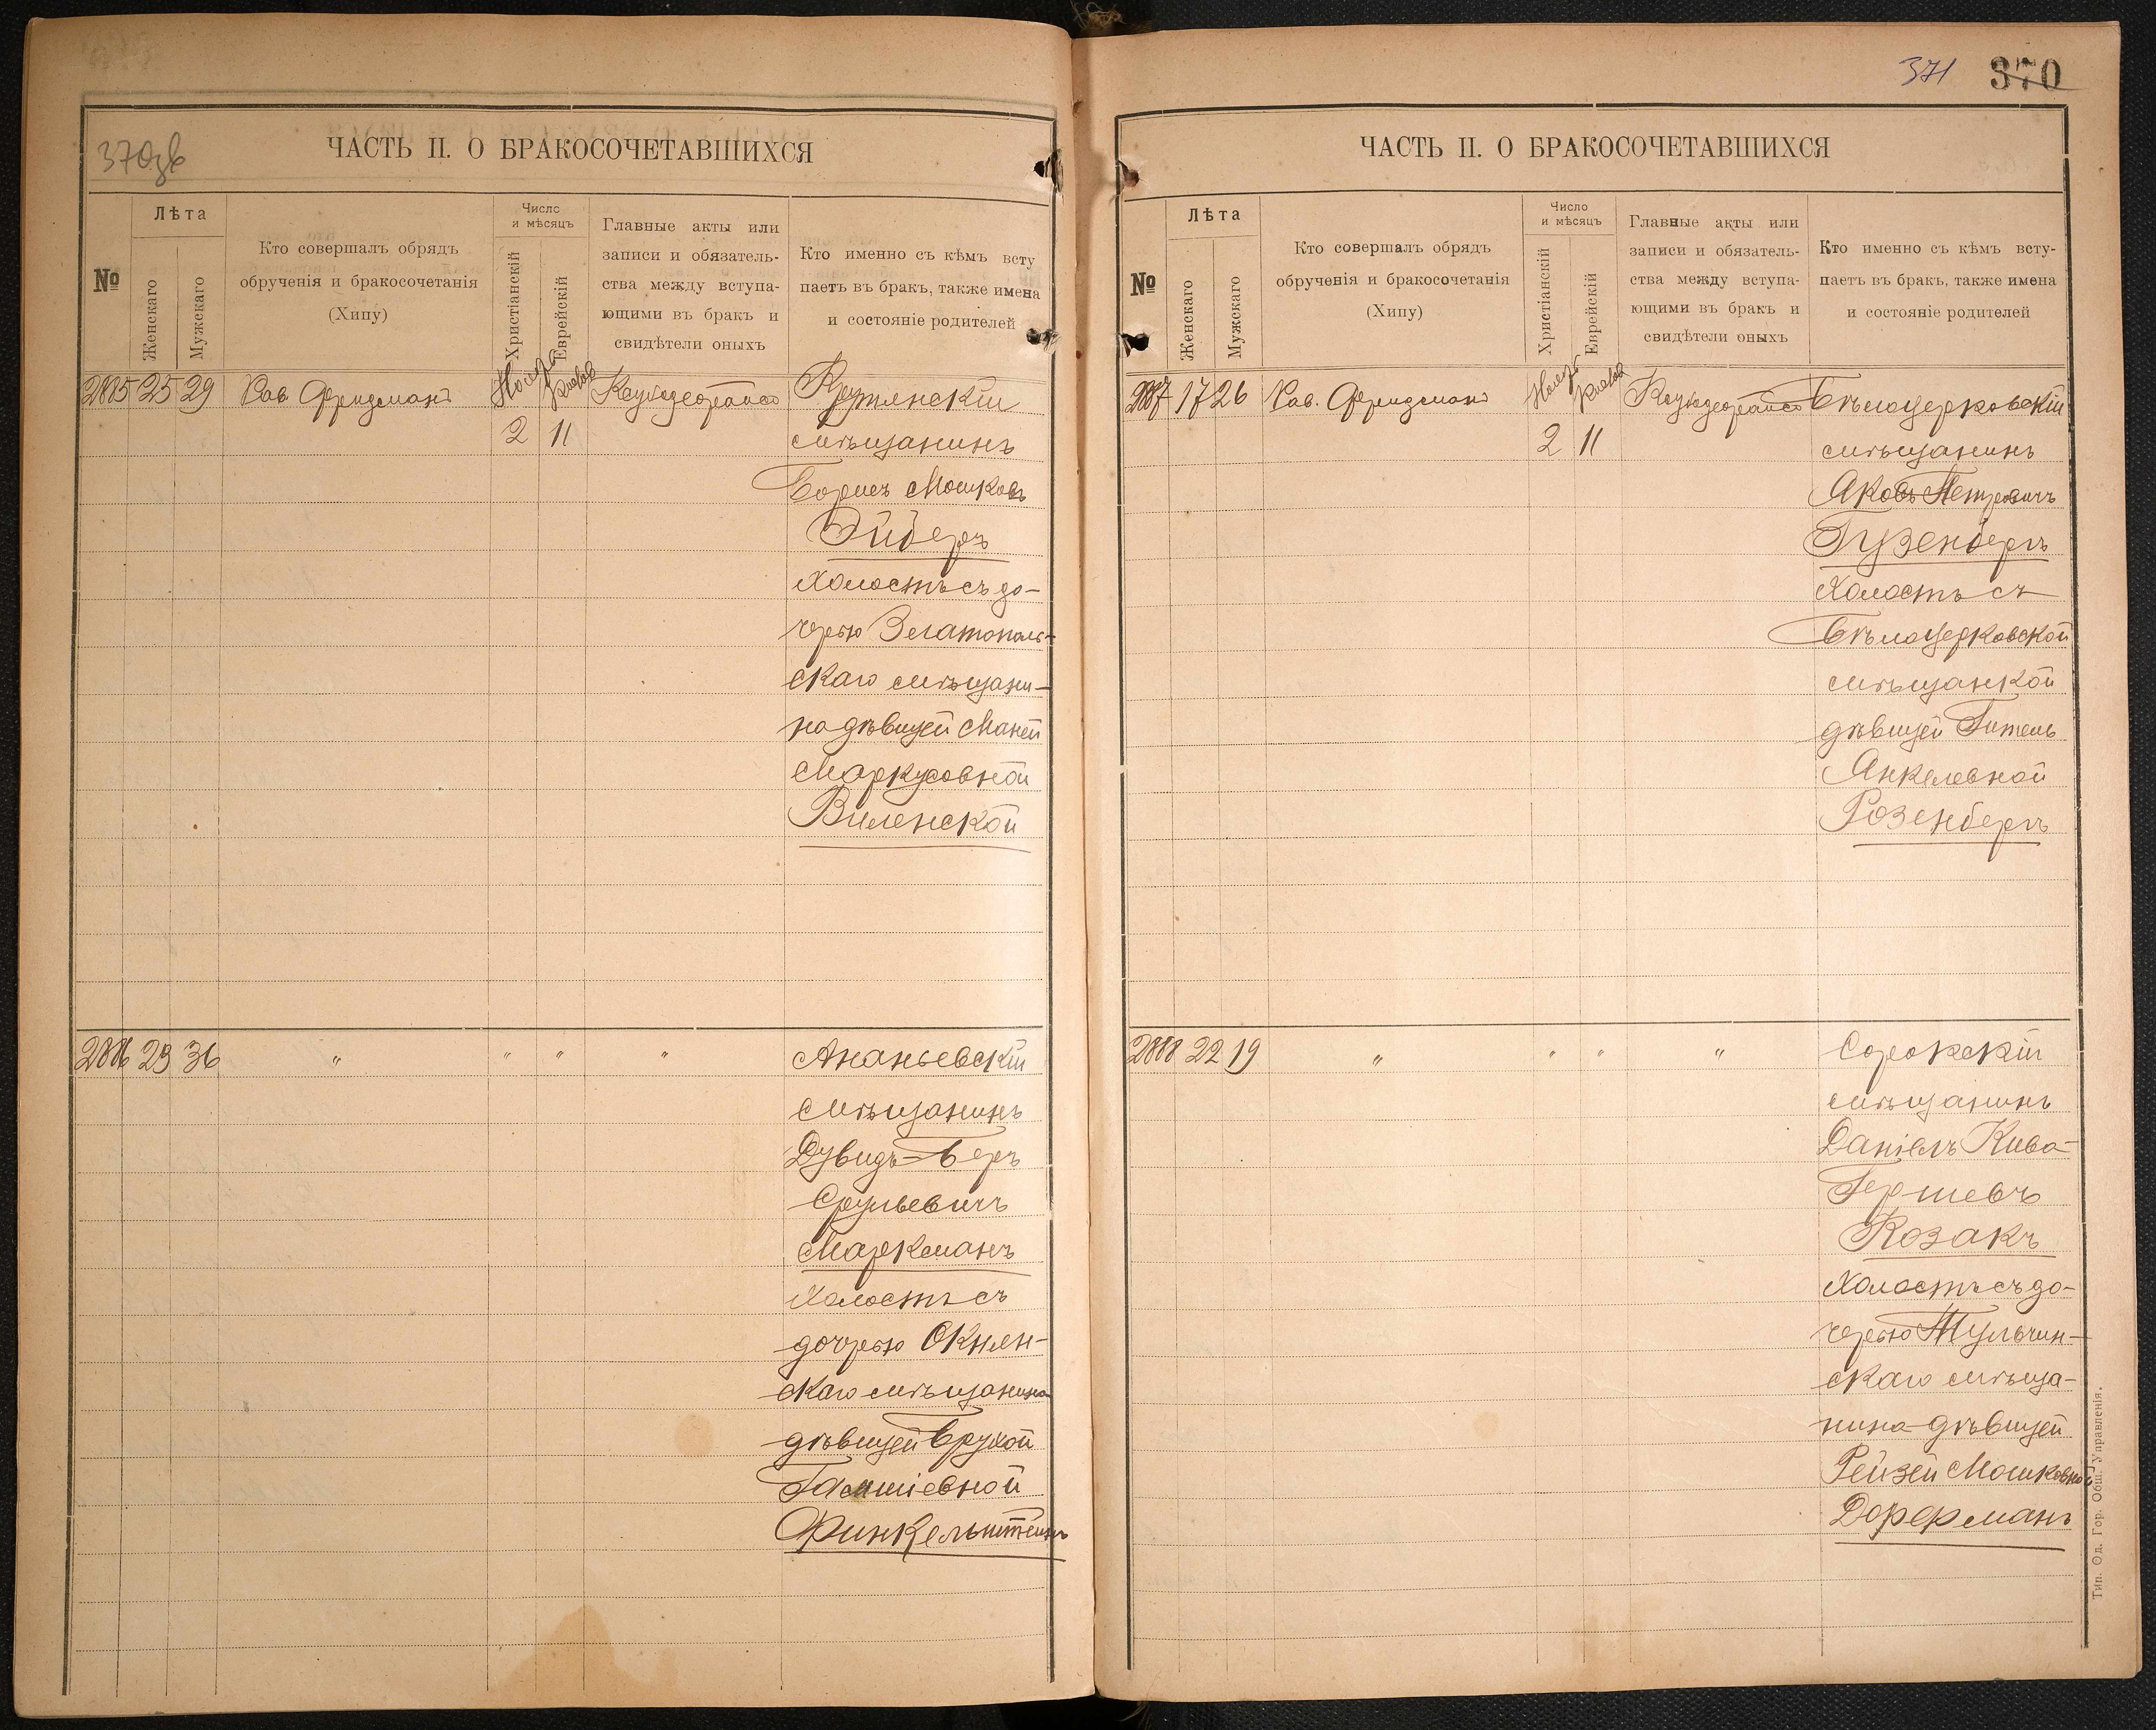 370об
ЧАСТЬ II. О БРАКОСОЧЕТАВШИХСЯ
№
Лѣта
Женскаго
Мужскаго
Кто совершалъ обрядъ
обрученія и бракосочетанія
(Хипу)
Число
и мѣсяцъ
Христіанскій
Еврейскій
Главные акты или
записи и обязатель-
ства между вступа-
ющими въ бракъ и
свидѣтели оныхъ
Кто именно съ кѣмъ всту
паетъ въ бракъ, также имена
и состояніе родителей
2885 25 29 Рав. Фридманъ Ноября Кислев
2 11
мѣщанинъ
Борисъ Мошковъ
Эйберъ
холостъ съ до-
черью Златополь-
скаго мѣщани-
на дѣвицей Маней
Маркусовной
Виленской
2886 23 36 " " " " Ананьевскій
мѣщанинъ
Дувидъ-Беръ
Срульевичъ
Маркманъ
холостъ съ
дочерью Окнян-
скаго мѣщанина
дѣвицей Брухой
Финкельштейнъ
371 370
ЧАСТЬ II. О БРАКОСОЧЕТАВШИХСЯ
№
Лѣта
Женскаго
Мужскаго
Кто совершалъ обрядъ
обрученія и бракосочетанія
(Хипу)
Число
и мѣсяцъ
Христіанскій
Еврейскій
Главные акты или
записи и обязатель-
ства между вступа-
ющими въ бракъ и
свидѣтели оныхъ
Кто именно съ кѣмъ всту-
паетъ въ бракъ, также имена
и состояніе родителей
2887 17 26 Рав. Фридманъ Ноября Кислев Бѣлоцерковскій
2 11 мѣщанинъ
Яковъ Петровичъ
Гузенбергъ
холостъ съ
Бѣлоцерковской
мѣщанкой
дѣвицей Гитель
Анкелевной
Розенбергъ
2888 22 19 " " " " Сорокскій
мѣщанинъ
Даніелъ Кива-
Гершевъ
Козакъ
холостъ съ до-
черью Тульчин-
скаго мѣща-
нина дѣвицей
Рейзей Мошковной
Дорфманъ
Тип. Од. Гор. Общ. Управленія.